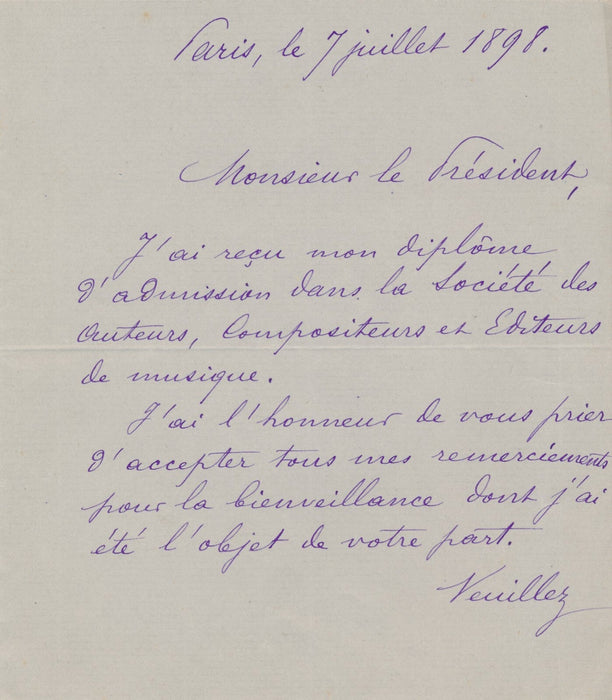 Paris, le 7 juillet 1898.
Monsieur le Président,
J'ai reçu mon diplôme
d'admission dans la Société des
Auteurs, Compositeurs et Editeurs
de musique.
J'ai l'honneur de vous prier
d'accepter tous mes remerciements
pour la bienveillance dont j'ai
été l'objet de votre part.
Veuillez